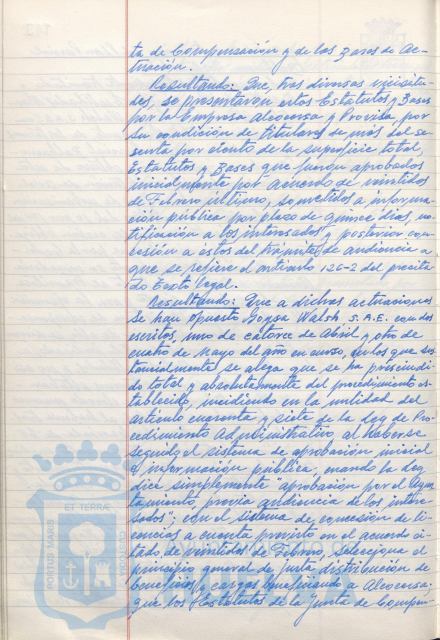 ta de Compensación y de las Bases de Ac-
tuación.
Resultando: Que, tras diversas vicisitu-
des, se presentaron estos Estatutos y Bases
por la Empresa Alocensa y Provida, por
su condición de titulares de más del se-
senta por ciento de la superficie total,
Estatutos y Bases que fueron aprobados
inicialmente por acuerdo de veintidos
de Febrero último, sometidos a informa-
ción pública por plazo de quince días, no-
tificación a los interesados y posterior con-
cesión a éstos del trámite de audiencia a
que se refiere el artículo 126-2 del precita-
do Texto legal.
Resultando: Que a dichas actuaciones
se han opuesto Walsh S.A.E. con dos
escritos, uno de catorce de Abril y otro de
cuatro de Mayo del año en curso, en los que sus-
tancialmente se alega que se ha prescindi-
do total y absolutamente del procedimiento es-
tablecido, incidiendo en la nulidad del
artículo cuarenta y siete de la Ley de Pro-
cedimiento Administrativo, al haberse
seguido el sistema de aprobación inicial
e información pública, cuando la Ley
dice simplemente "aprobación por el Ayun-
tamiento, previa audiencia de los intere-
sados"; con el sistema de concesión de li-
cencias a cuenta previsto en el acuerdo ci-
tado de veintidos de Febrero, se lesiona el
principio general de justa distribución de
beneficios y cargas beneficiando a Alocensa;
que los Estatutos de la Junta de Compen-
PORTUS MARIS
ET TERRÆ
CUSTODIA